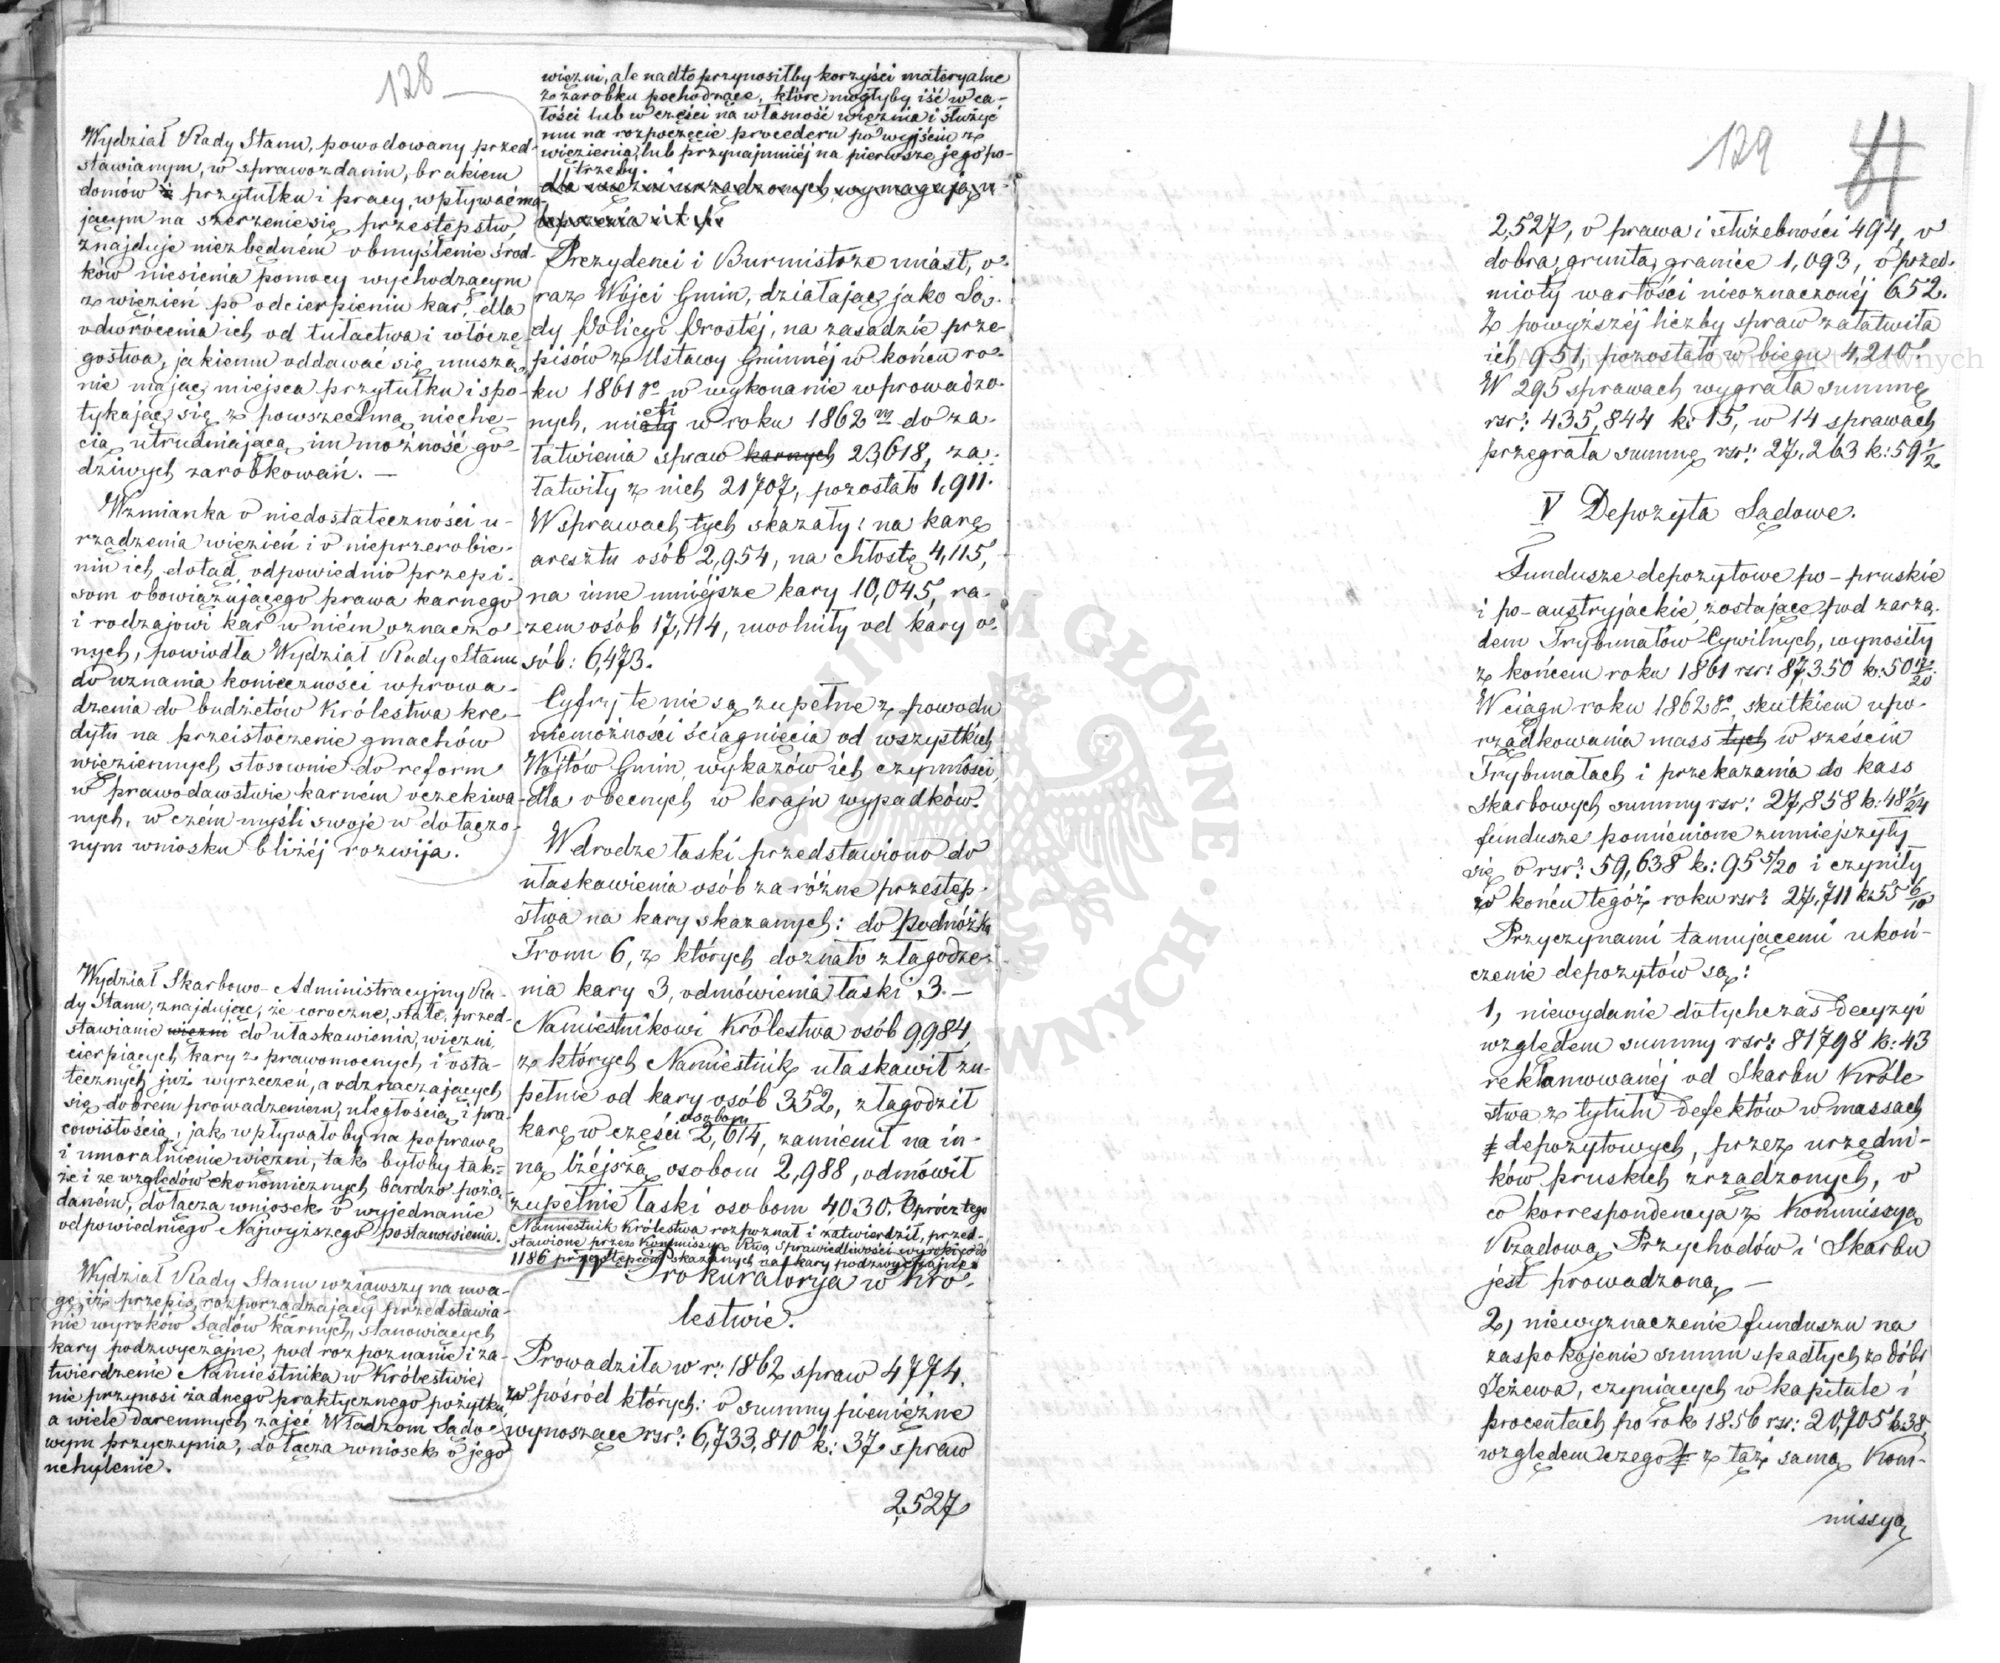 128
Wydział Rady Stanu, powodowany przed-
stawianym, w sprawozdaniu, brakiem
domów przytułku i pracy, wpływać ma-
jącym na szerzenie się przestępstw,
znajduje niezbędném obmyślenie środ-
ków niesienia pomocy wychodzącym
z więzień po odcierpieniu kar, dla
odwrócenia ich od tułactwa i włóczę-
gostwa, jakiemu oddawać się muszą,
nie mając miejsca przytułku i spo-
tykając się z powszechną niechę-
cią utrudniającą im możność go-
dziwych zarobkowań. —
Wzmianka o niedostateczności u-
rządzenia więzień i o nieprzerobie-
niu ich dotąd odpowiednio przepi-
som obowiązującego prawa karnego
i rodzajowi kar w niém oznaczo-
nych, powiodła Wydział Rady Stanu
do uznania konieczności wprowa-
dzenia do budżetów Królestwa kre-
dytu na przeistoczenie gmachów
więziennych stosownie do reform
w prawodawstwie karném oczekiwa-
nych, w czém myśli swoje w dołączo-
nym wniosku bliżéj rozwija.
Wydział Skarbowo-Administracyjny Ra-
dy Stanu, znajdując, że coroczne, stałe, przed-
stawianie więzni do ułaskawienia, więzni,
cierpiących kary z prawomocnych i osta-
tecznych już wyrzeczeń, a odznaczających
się dobrém prowadzeniem, uległością i pra-
cowitością, jak wpływałoby na poprawę
i umoralnienie więzni, tak byłoby tak-
że i ze względów ekonomicznych bardzo pożą-
daném, dołącza wniosek o wyjednanie
odpowiedniego Najwyższego postanowienia.
Wydział Rady Stanu wziąwszy na uwa-
gę, iż przepis, rozporządzający przedstawia-
nie wyroków Sądów Karnych, stanowiących
kary podzwyczajne, pod rozpoznanie i za-
twierdzenie Namiestnika w Królestwie,
nie przynosi żadnego praktycznego pożytku,
a wiele daremnych zajęć Władzom Sądo-
wym przyczynia, dołącza wniosek o jego
uchylenie.
więzni, ale nadto przynosiłby korzyści materyalne
z zarobku pochodzące, które mogłyby iść w ca-
łości lub w części na własność więźnia i służyć
mu na rozpoczęcie procederu po wyjściu z
więzienia, lub przynajmniéj na pierwsze jego po-
trzeby.
dla więzni urządzonych, wymagają u-
lepszenia i t. p.
Prezydenci i Burmistrze miast, o-
raz Wójci Gmin, działając jako Są-
dy Policyi Prostéj, na zasadzie prze-
pisów z Ustawy Gminnéj w końcu ro-
ku 1861go w wykonanie wprowadzo-
nych, miały eli w roku 1862m do za-
łatwienia spraw karnych 23,618, za-
łatwiły z nich 21707, pozostało 1,911.
W sprawach tych skazały: na karę
aresztu osób 2,954, na chłostę 4,115,
na inne mniéjsze kary 10,045, ra-
zem osób 17,114, uwolniły od kary o-
sób: 6,473.
Cyfry te nie są zupełne z powodu
niemożności ściągnięcia od wszystkich
Wójtów Gmin, wykazów ich czynności,
dla obecnych w kraju wypadków.
W drodze łaski przedstawiono do
ułaskawienia osób za różne przestęp-
stwa na kary skazanych: do Podnóżka
Tronu 6, z których doznało złagodze-
nia kary 3, odmówienia łaski 3.—
Namiestnikowi Królestwa osób 9984,
z których Namiestnik ułaskawił zu-
pełnie od kary osób 352, złagodził
karę w części osobom 2,614, zamienił na in-
ną lżéjszą osobom 2,988, odmówił
zupełnie łaski osobom 4030. Oprócz tego
Namiestnik Królestwa rozpoznał i zatwierdził, przed-
stawione przez Kommissyą Rwą Sprawiedliwości wyroki co do
1186 przestępców skazanych na kary podzwyczajne.
IV Prokuratorya w Kró-
lestwie.
Prowadziła w r: 1862 spraw 4774.
z pośród których: o summy pieniężne
wynoszące rsr: 6,733,810 k: 37 spraw
2,527
129
2,527, o prawa i służebności 494, o
dobra, grunta, granice 1,093, o przed-
mioty wartości nieoznaczonéj 652.
Z powyższéj liczby spraw załatwiła
ich 951, pozostało w biegu 4,210.
W 295 sprawach wygrała summę
rsr: 435,844 k: 15, w 14 sprawach
przegrała summę rsr: 27,263 k: 59½
V Depozyta Sądowe.
Fundusze depozytowe po-pruskie
i po-austryjackie, zostające pod zarzą-
dem Trybunałów Cywilnych, wynosiły
z końcem roku 1861 rsr: 87,350 k: 50
W ciągu roku 1862go, skutkiem upo-
rządkowania mass tych w sześciu
Trybunałach i przekazania do kass
Skarbowych summy rsr: 27,858 k: 48 1/24
fundusze pomienione zmniejszyły
się o rsr: 59,638 k: 95 5/20 i czyniły
w końcu tegóż roku rsr: 27,711 k: 55 6/10
Przyczynami tamującemi ukoń-
czenie depozytów są:
1, niewydanie dotychczas Decyzyi
względem summy rsr: 81798 k: 43
reklamowanéj od Skarbu Króle
stwa z tytułu Defektów w massach
depozytowych, przez urzędni-
ków pruskich zrządzonych, o
co korrespondencya z Kommissyą
Rządową Przychodów i Skarbu
jest prowadzoną —
2, niewyznaczenie funduszu na
zaspokojenie summ spadłych z dóbr
Jeżewa, czyniących w kapitale i
procentach po rok 1856 rsr: 20,705 k: 38,
względem czego z tąż samą Kom-
missyą
Archiwum Główne Akt Dawnych